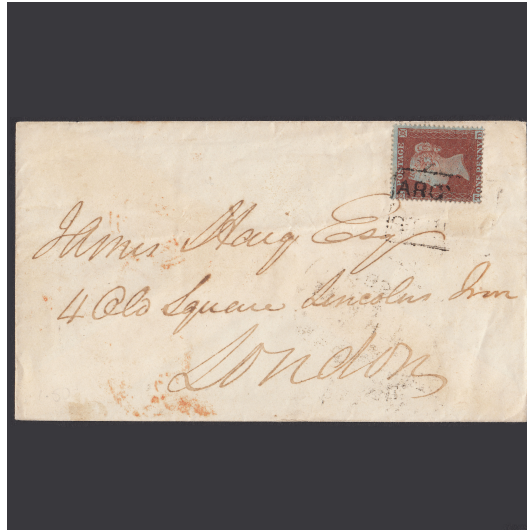 POSTAGE
James Haug Esq
4 Old Square Lincolns Inn
London